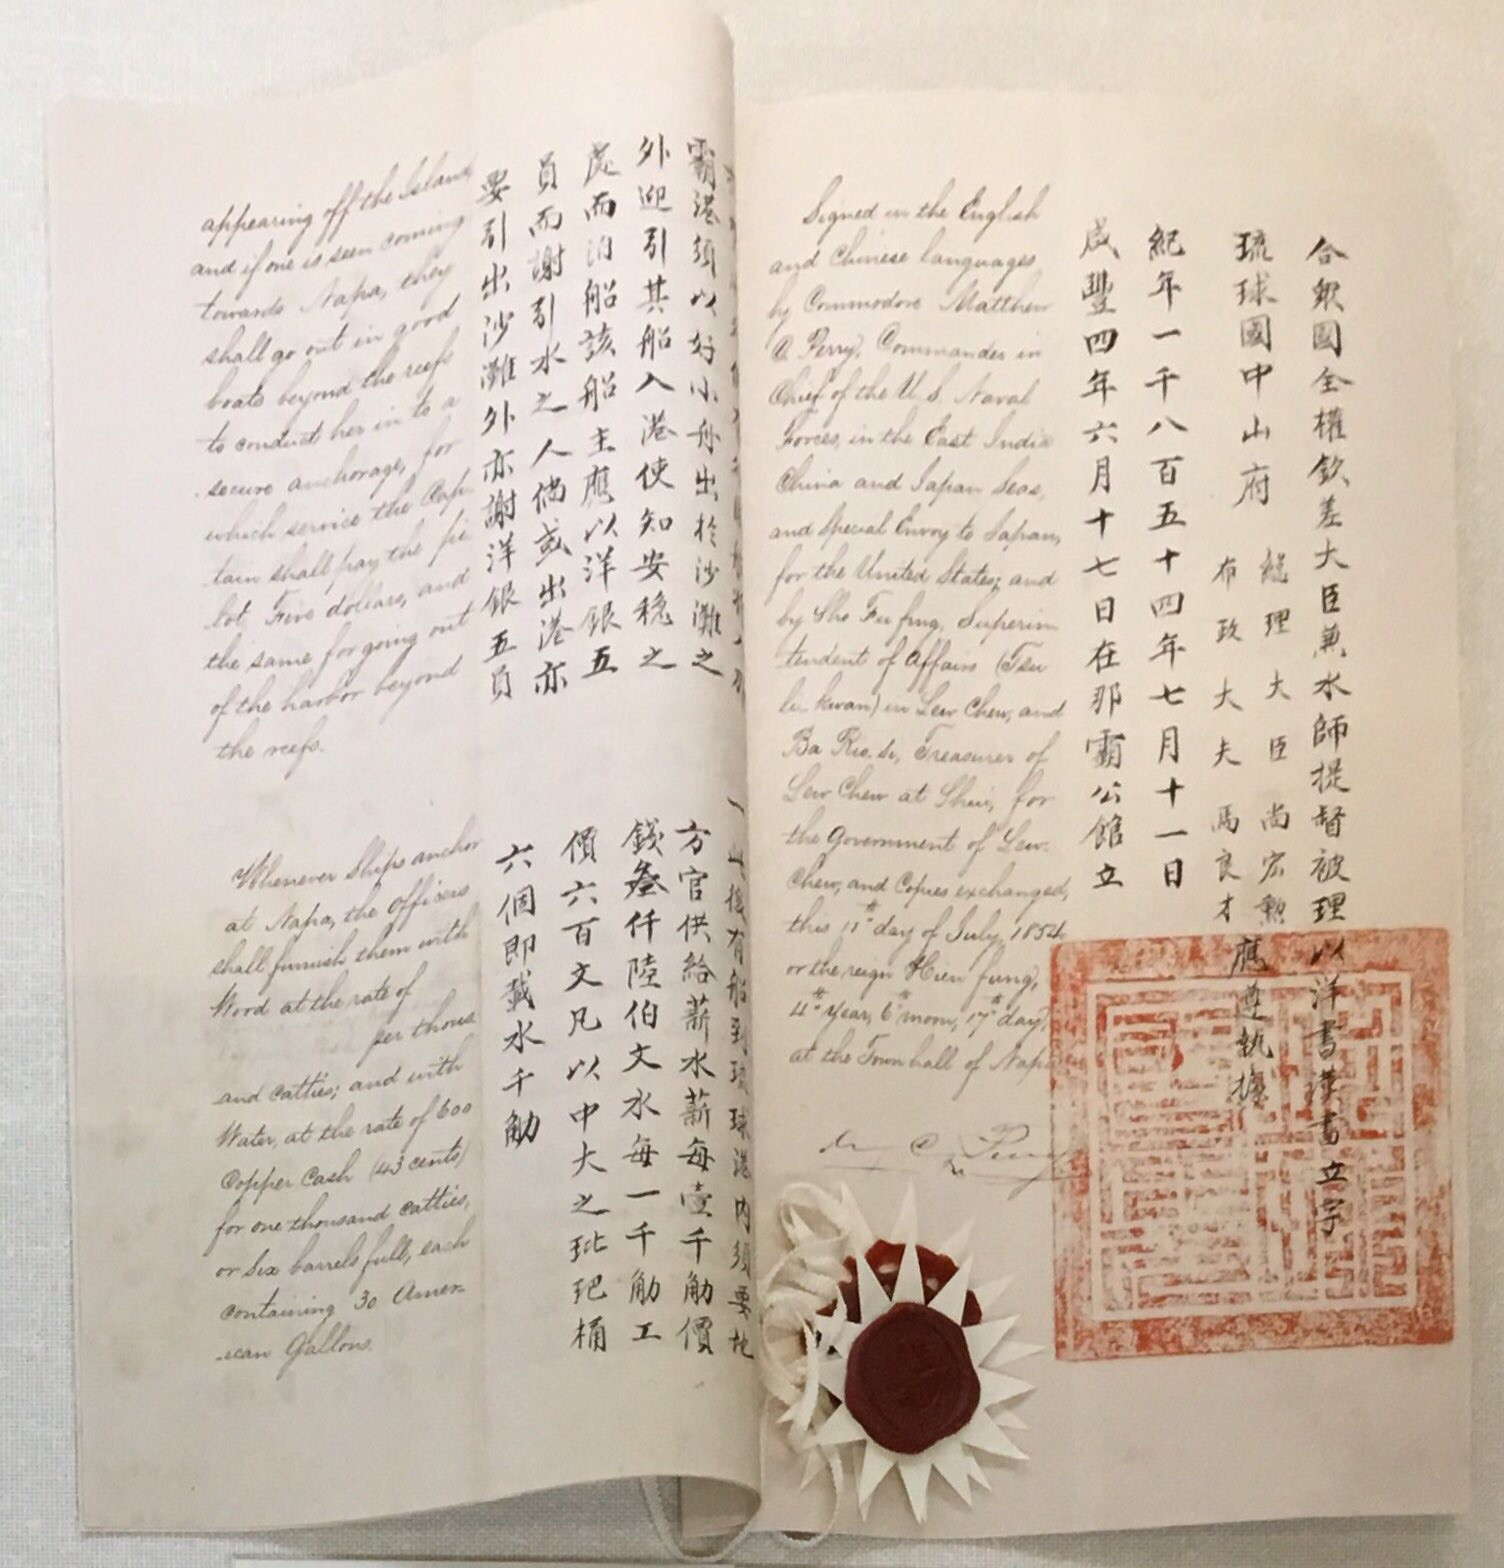 appearing off the Island
and if one is seen coming
towards Napa, they
shall go out in good
boats beyond the reefs
to conduct her in to a
secure anchorage, for
which service the Cap-
tain shall pay the pi-
lot Five dollars, and
the same for going out
of the harbor beyond
the reefs.
Whenever Ships anchor
at Napa, the officers
shall furnish them with
Wood at the rate of
per thous
and catties; and with
Water, at the rate of 600
Copper Cash (43 cents)
for one thousand catties,
or six barrels full, each
containing 30 Amer-
ican Gallons.
霸港須以好小舟出於沙灘之
外迎引其船入港使知安穩之
處而泊船該船主應以洋銀五
員而謝引水之人倘或出港亦
要引出沙灘外亦謝洋銀五員
一此後有船到琉球港內須要地
方官供給薪水薪每壹千觔價
錢叄仟陸伯文水每一千觔工
價六百文凡以中大之玭玘桶
六個即載水千觔
Signed in the English
and Chinese languages
by Commodore Matthew
C. Perry, Commander in
Chief of the U. S. Naval
Forces, in the East India
China and Japan Seas,
and Special Envoy to Japan,
for the United States; and
by Sho Fu fing, Superin-
tendent of Affairs (Tsu
li-kwan) in Lew Chew, and
Ba Rio-si, Treasurer of
Lew Chew at Shui, for
the Government of Lew-
Chew, and Copies exchanged,
this 11th day of July, 1854,
or the reign Hien fung,
4th Year, 6th moon, 17th day,
at the Town hall of Napa
M C Perry
合眾國全權欽差大臣兼水師提督被理以洋書漢書立字
琉球國中山府
總理大臣尚宏勳
布政大夫馬良才
應遵執據
紀年一千八百五十四年七月十一日
咸豐四年六月十七日在那霸公館立